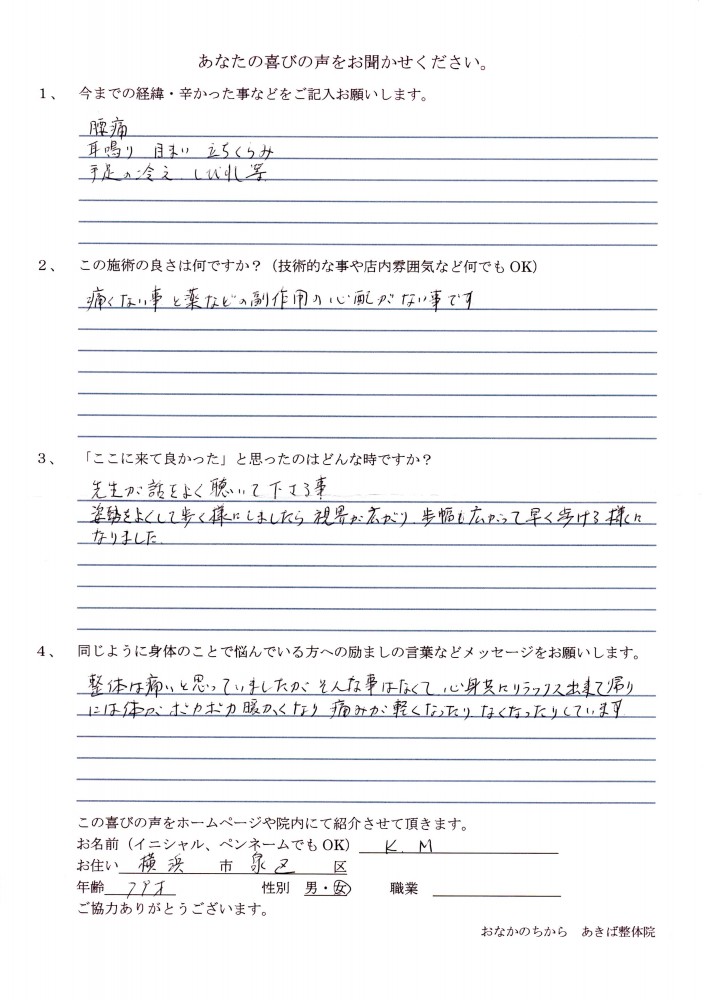 あなたの喜びの声をお聞かせください。
1、 今までの経緯・辛かった事などをご記入お願いします。
腰痛
耳鳴り 目まい 立ちくらみ
手足の冷え しびれ等
2、 この施術の良さは何ですか?(技術的な事や店内雰囲気など何でもOK)
痛くない事と薬などの副作用の心配がない事です
3、 「ここに来て良かった」と思ったのはどんな時ですか?
先生が話をよく聴いて下さる事
姿勢をよくして歩く様にしましたら 視界が広がり、歩幅も広がって早く歩ける様に
なりました
4、 同じように身体のことで悩んでいる方への励ましの言葉などメッセージをお願いします。
整体は痛いと思っていましたが そんな事はなくて 心身共にリラックス出来て帰り
には体がポカポカ暖かくなり 痛みが軽くなったり なくなったりしています
この喜びの声をホームページや院内にて紹介させて頂きます。
お名前(イニシャル、ペンネームでもOK) K. M
お住い 横浜 市 泉区 区
年齢 才 性別 男・女 職業
ご協力ありがとうございます。
おなかのちから あきば整体院